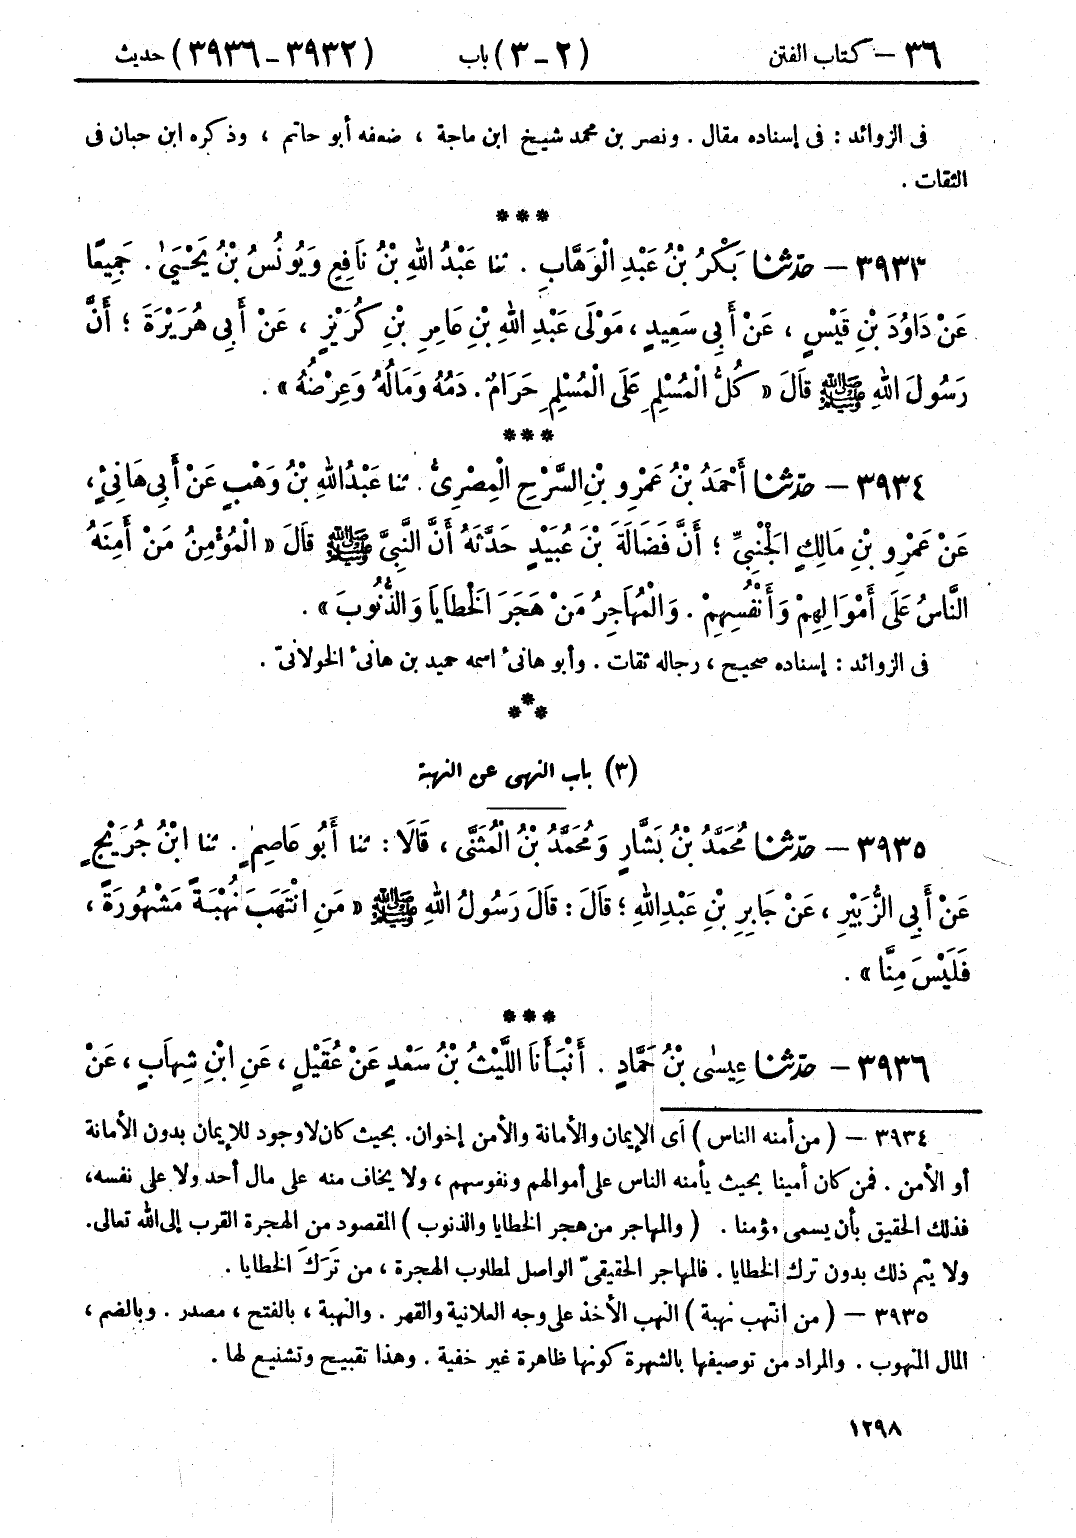 ٣٦ — كتاب الفتن (٢ – ٣) باب (٣٩٣٢ – ٣٩٣٦) حديث
فى الزوائد : فى إسناده مقال . ونصر بن محمد شيخ ابن ماجة ، ضعفه أبو حاتم ، وذكره ابن حبان فى
الثقات .
***
٣٩٣٣ — حدّثنا بَكْرُ بْنُ عَبْدِ الْوَهَّابِ . ثنا عَبْدُ اللهِ بْنُ نَافِعٍ وَيُونُسُ بْنُ يَحْيَىٰ . جَمِيعًا
عَنْ دَاوُدَ بْنِ قَيْسٍ ، عَنْ أَبِى سَعِيدٍ ، مَوْلَى عَبْدِ اللهِ بْنِ عَامِرِ بْنِ كُرَيْزٍ ، عَنْ أَبِى هُرَيْرَةَ ؛ أَنَّ
رَسُولَ اللهِ ﷺ قَالَ « كُلُّ الْمُسْلِمِ عَلَى الْمُسْلِمِ حَرَامٌ . دَمُهُ وَمَالُهُ وَعِرْضُهُ » .
***
٣٩٣٤ — حدّثنا أَحْمَدُ بْنُ عَمْرِو بْنِ السَّرْحِ الْمِصْرِىُّ . ثنا عَبْدُ اللهِ بْنُ وَهْبٍ عَنْ أَبِى هَانِئٍ ،
عَنْ عَمْرِو بْنِ مَالِكٍ الْجَنْبِىِّ ؛ أَنَّ فَضَالَةَ بْنَ عُبَيْدٍ حَدَّثَهُ أَنَّ النَّبِىَّ ﷺ قَالَ « الْمُؤْمِنُ مَنْ أَمِنَهُ
النَّاسُ عَلَى أَمْوَالِهِمْ وَأَنْفُسِهِمْ . وَالْمُهَاجِرُ مَنْ هَجَرَ الْخَطَايَا وَالذُّنُوبَ » .
فى الزوائد : إسناده صحيح ، رجاله ثقات . وأبو هانىٔ اسمه حميد بن هانىٔ الخولانىّ .
***
(٣) باب النهى عن النهبة
٣٩٣٥ — حدّثنا مُحَمَّدُ بْنُ بَشَّارٍ وَمُحَمَّدُ بْنُ الْمُثَنَّى ، قَالَا : ثنا أَبُو عَاصِمٍ . ثنا ابْنُ جُرَيْجٍ
عَنْ أَبِى الزُّبَيْرِ ، عَنْ جَابِرِ بْنِ عَبْدِ اللهِ ؛ قَالَ : قَالَ رَسُولُ اللهِ ﷺ « مَنِ انْتَهَبَ نُهْبَةً مَشْهُورَةً ،
فَلَيْسَ مِنَّا » .
***
٣٩٣٦ — حدّثنا عِيسَى بْنُ حَمَّادٍ . أَنْبَأَنَا اللَّيْثُ بْنُ سَعْدٍ عَنْ عُقَيْلٍ ، عَنِ ابْنِ شِهَابٍ ، عَنْ
٣٩٣٤ — ( من أمنه الناس ) أى الإيمان والأمانة والأمن إخوان . بحيث كان لا وجود للإيمان بدون الأمانة
أو الأمن . فمن كان أمينا بحيث يأمنه الناس على أموالهم ونفوسهم ، ولا يخاف منه على مال أحد ولا على نفسه ،
فذلك الحقيق بأن يسمى مؤمنا . ( والمهاجر من هجر الخطايا والذنوب ) المقصود من الهجرة القرب إلى الله تعالى .
ولا يتم ذلك بدون ترك الخطايا . فالمهاجر الحقيقىّ الواصل لمطلوب الهجرة ، من تَرَكَ الخطايا .
٣٩٣٥ — ( من انتهب نهبة ) النهب الأخذ على وجه العلانية والقهر . والنهبة ، بالفتح ، مصدر . وبالضم ،
المال المنهوب . والمراد من توصيفها بالشهرة كونها ظاهرة غير خفية . وهذا تقبيح وتشنيع لها .
١٢٩٨